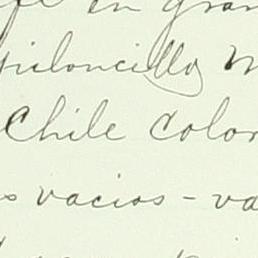 fe en gran
piloncillo M
Chile Color
s vacios - va